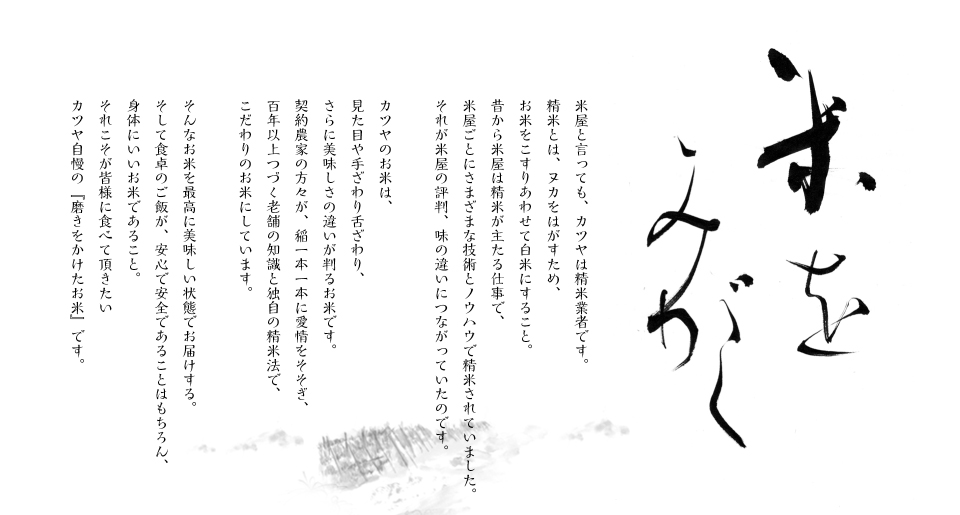 米を
みがく
米屋と言っても、カツヤは精米業者です。
精米とは、ヌカをはがすため、
お米をこすりあわせて白米にすること。
昔から米屋は精米が主たる仕事で、
米屋ごとにさまざまな技術とノウハウで精米されていました。
それが米屋の評判、味の違いにつながっていたのです。
カツヤのお米は、
見た目や手ざわり舌ざわり、
さらに美味しさの違いが判るお米です。
契約農家の方々が、稲一本一本に愛情をそそぎ、
百年以上つづく老舗の知識と独自の精米法で、
こだわりのお米にしています。
そんなお米を最高に美味しい状態でお届けする。
そして食卓のご飯が、安心で安全であることはもちろん、
身体にいいお米であること。
それこそが皆様に食べて頂きたい
カツヤ自慢の『磨きをかけたお米』です。